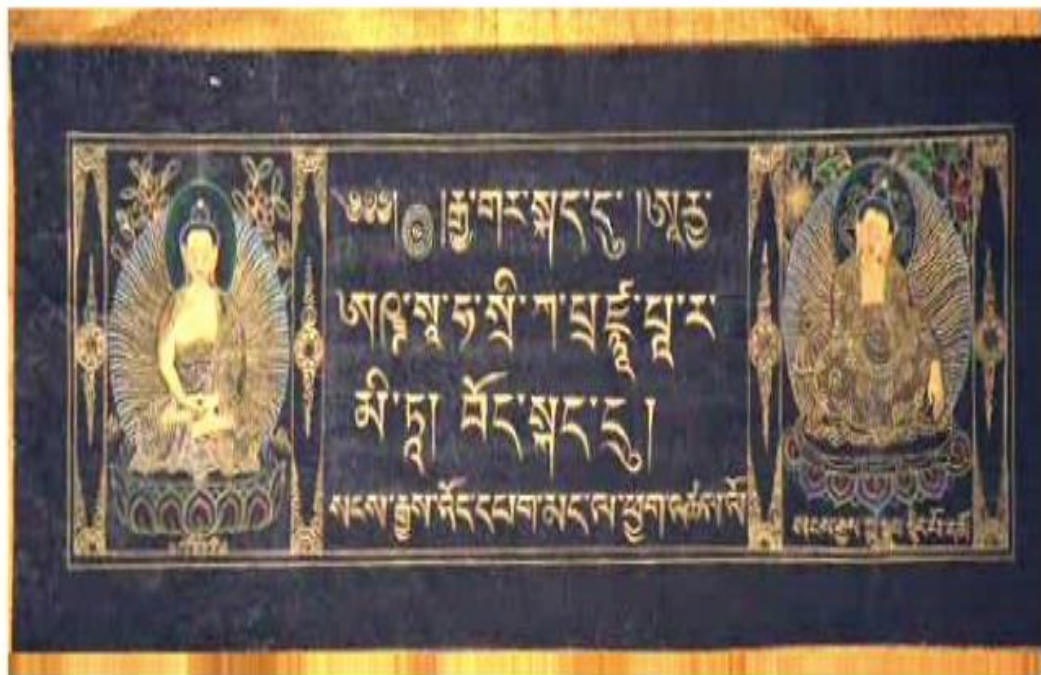 ༄༅༅། །རྒྱ་གར་སྐད་དུ། །ཨཱརྱ
ཨཥྚ་སཱ་ཧ་སྲི་ཀ་པྲཛྙཱ་པཱ་ར
མི་ཏཱ། བོད་སྐད་དུ།
སངས་རྒྱས་འོད་དཔག་མེད་ལ་ཕྱག་འཚལ་ལོ
སངས་རྒྱས